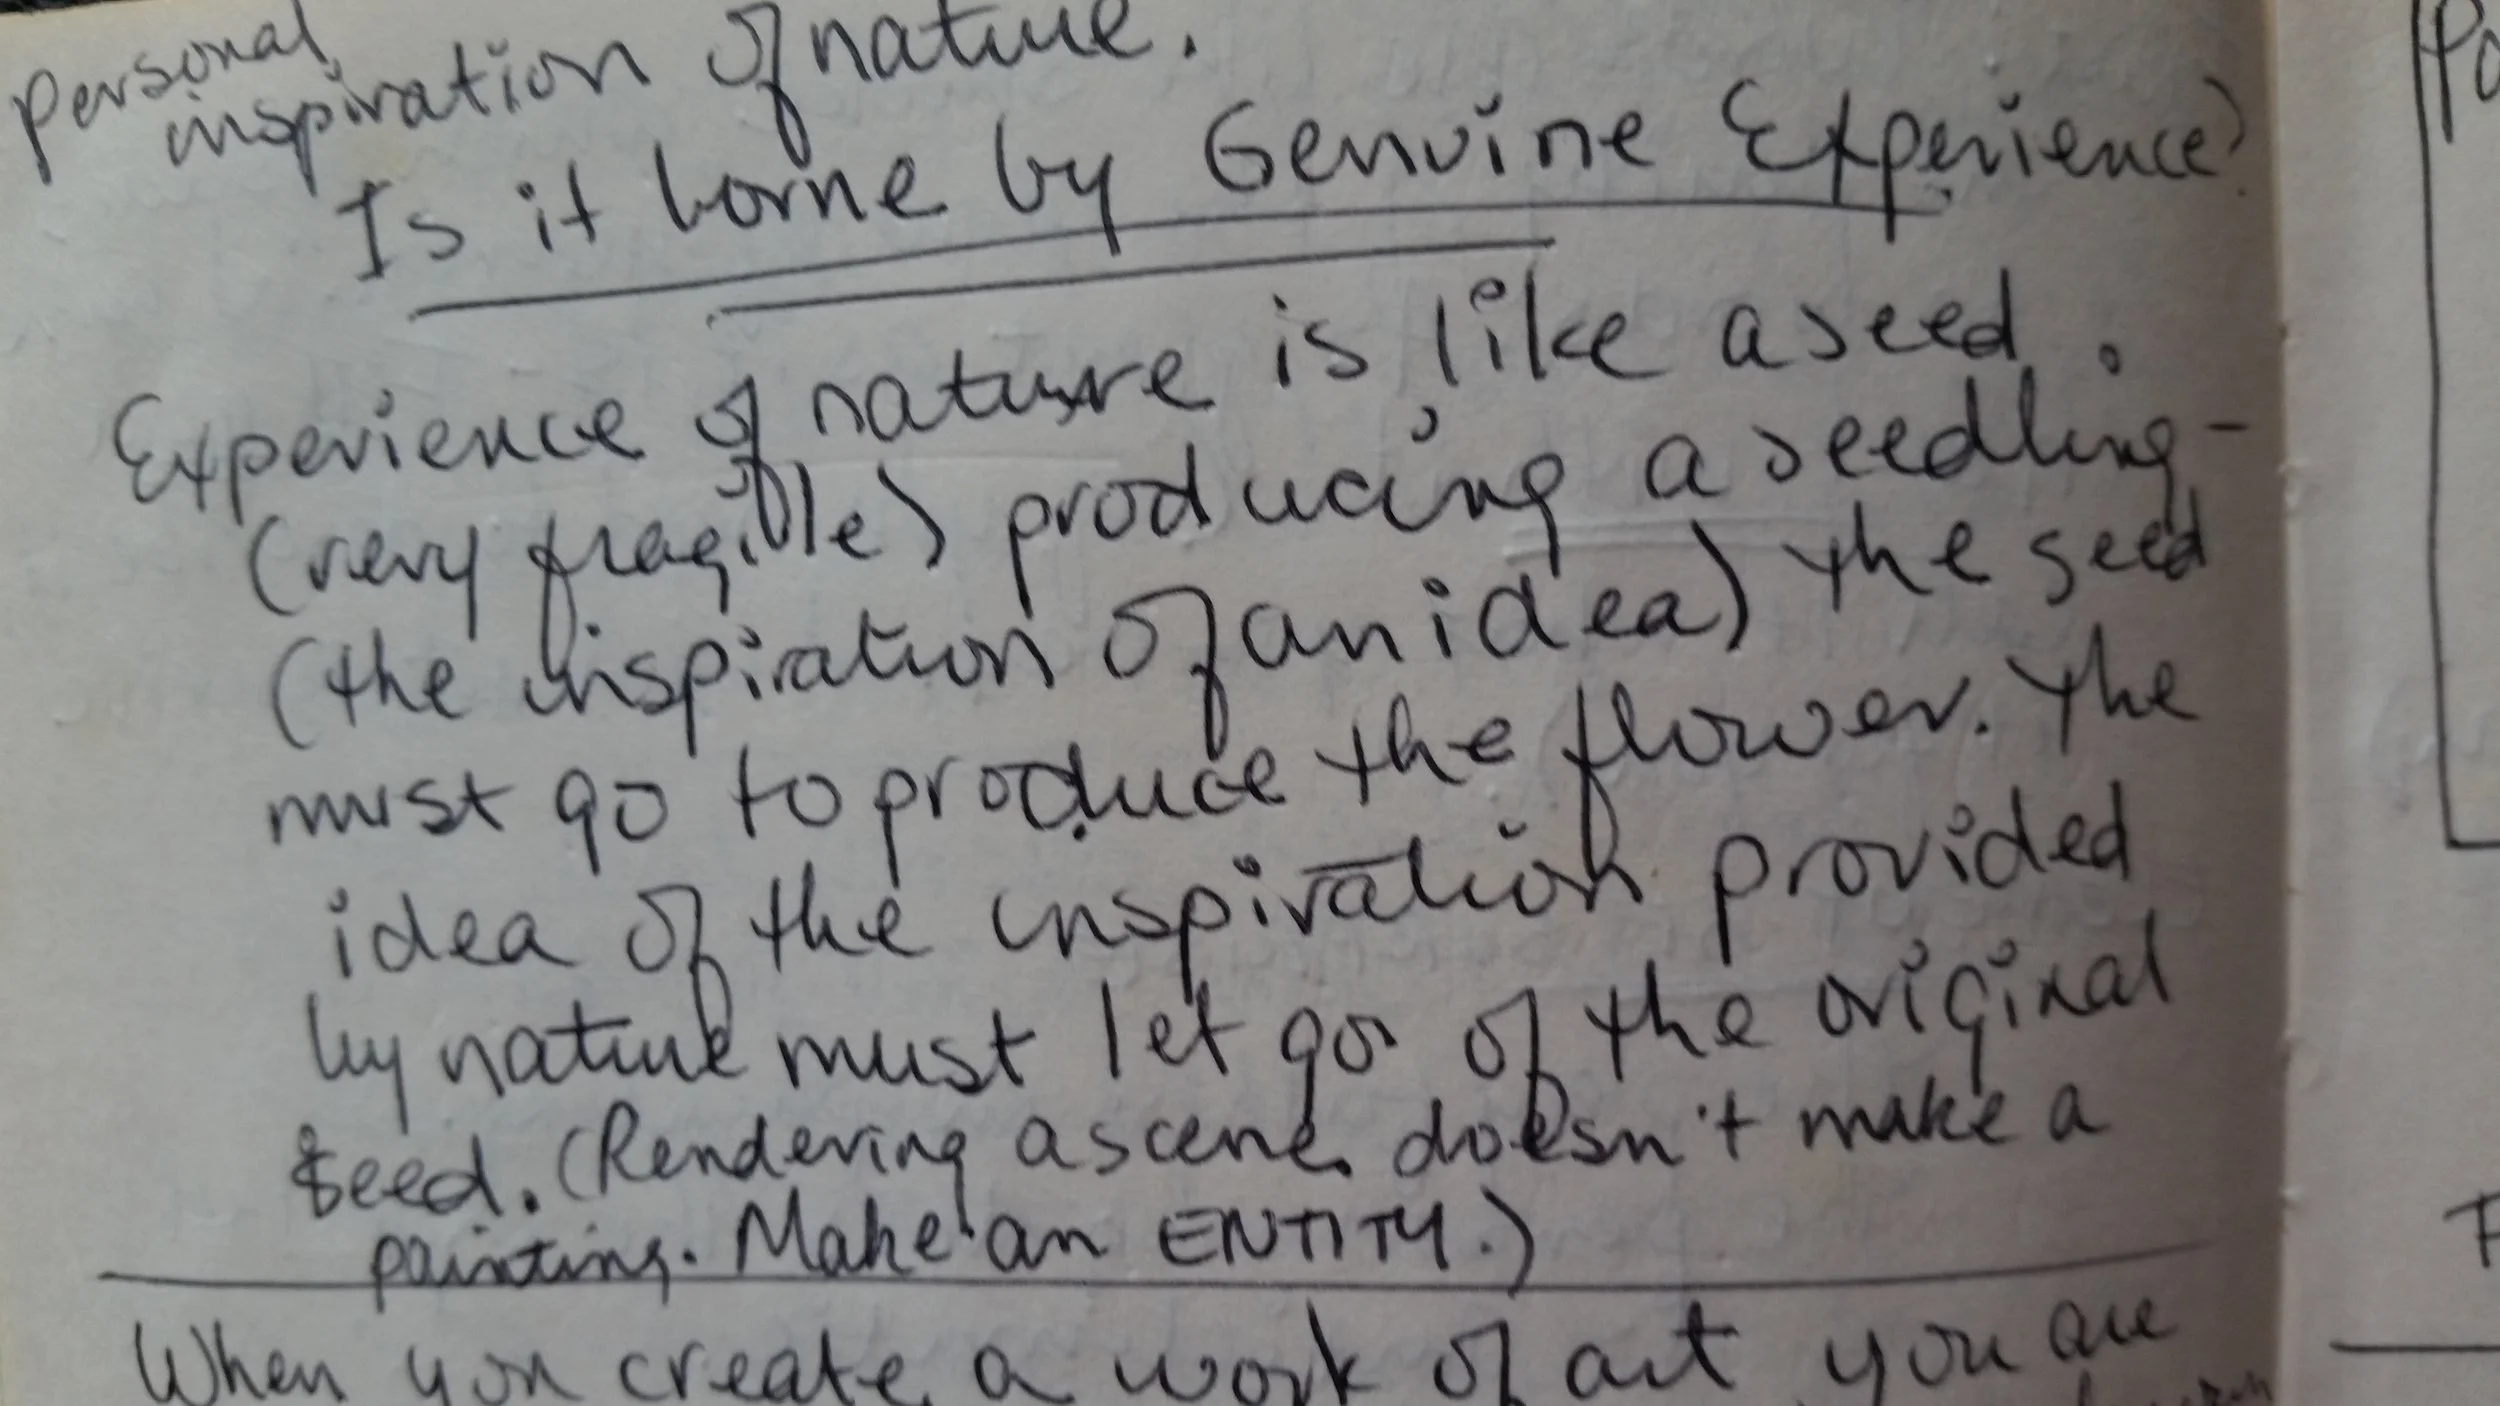 personal
inspiration of nature.
Is it borne by Genuine Experience?
Experience of nature is like a seed.
(very fragible) producing a seedling-
(the inspiration of an idea) the seed
must go to produce the flower. The
idea of the inspiration provided
by nature must let go of the original
seed. (Rendering a scene doesn't make a
painting. Make an ENTITY.)
When you create a work of art you are
Po
F